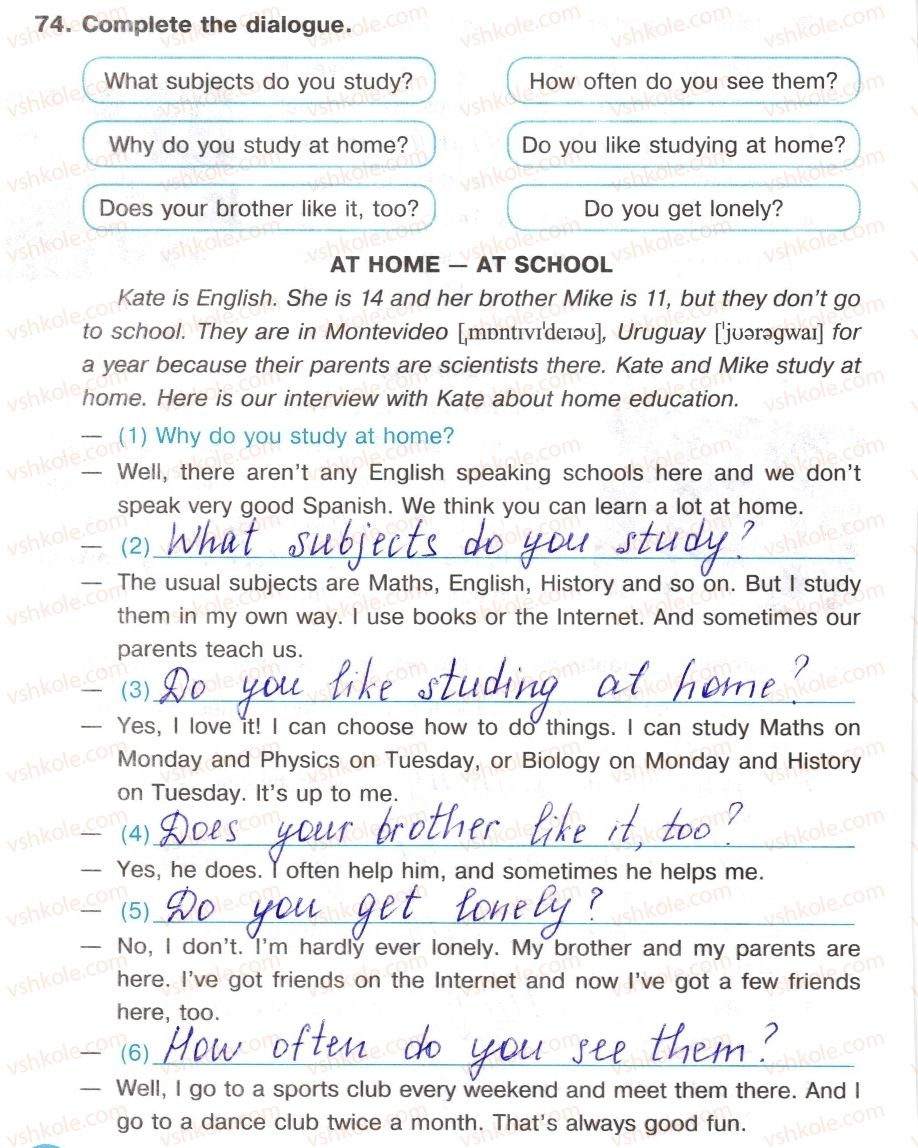 74. Complete the dialogue.
What subjects do you study?
How often do you see them?
Why do you study at home?
Do you like studying at home?
Does your brother like it, too?
Do you get lonely?
AT HOME — AT SCHOOL
Kate is English. She is 14 and her brother Mike is 11, but they don't go
to school. They are in Montevideo [ˌmɒntɪvɪˈdeɪəʊ], Uruguay [ˈjʊərəgwaɪ] for
a year because their parents are scientists there. Kate and Mike study at
home. Here is our interview with Kate about home education.
— (1) Why do you study at home?
— Well, there aren't any English speaking schools here and we don't
speak very good Spanish. We think you can learn a lot at home.
— (2) What subjects do you study?
— The usual subjects are Maths, English, History and so on. But I study
them in my own way. I use books or the Internet. And sometimes our
parents teach us.
— (3) Do you like studing at home?
— Yes, I love it! I can choose how to do things. I can study Maths on
Monday and Physics on Tuesday, or Biology on Monday and History
on Tuesday. It's up to me.
— (4) Does your brother like it, too?
— Yes, he does. I often help him, and sometimes he helps me.
— (5) Do you get lonely?
— No, I don't. I'm hardly ever lonely. My brother and my parents are
here. I've got friends on the Internet and now I've got a few friends
here, too.
— (6) How often do you see them?
— Well, I go to a sports club every weekend and meet them there. And I
go to a dance club twice a month. That's always good fun.
vshkole.com